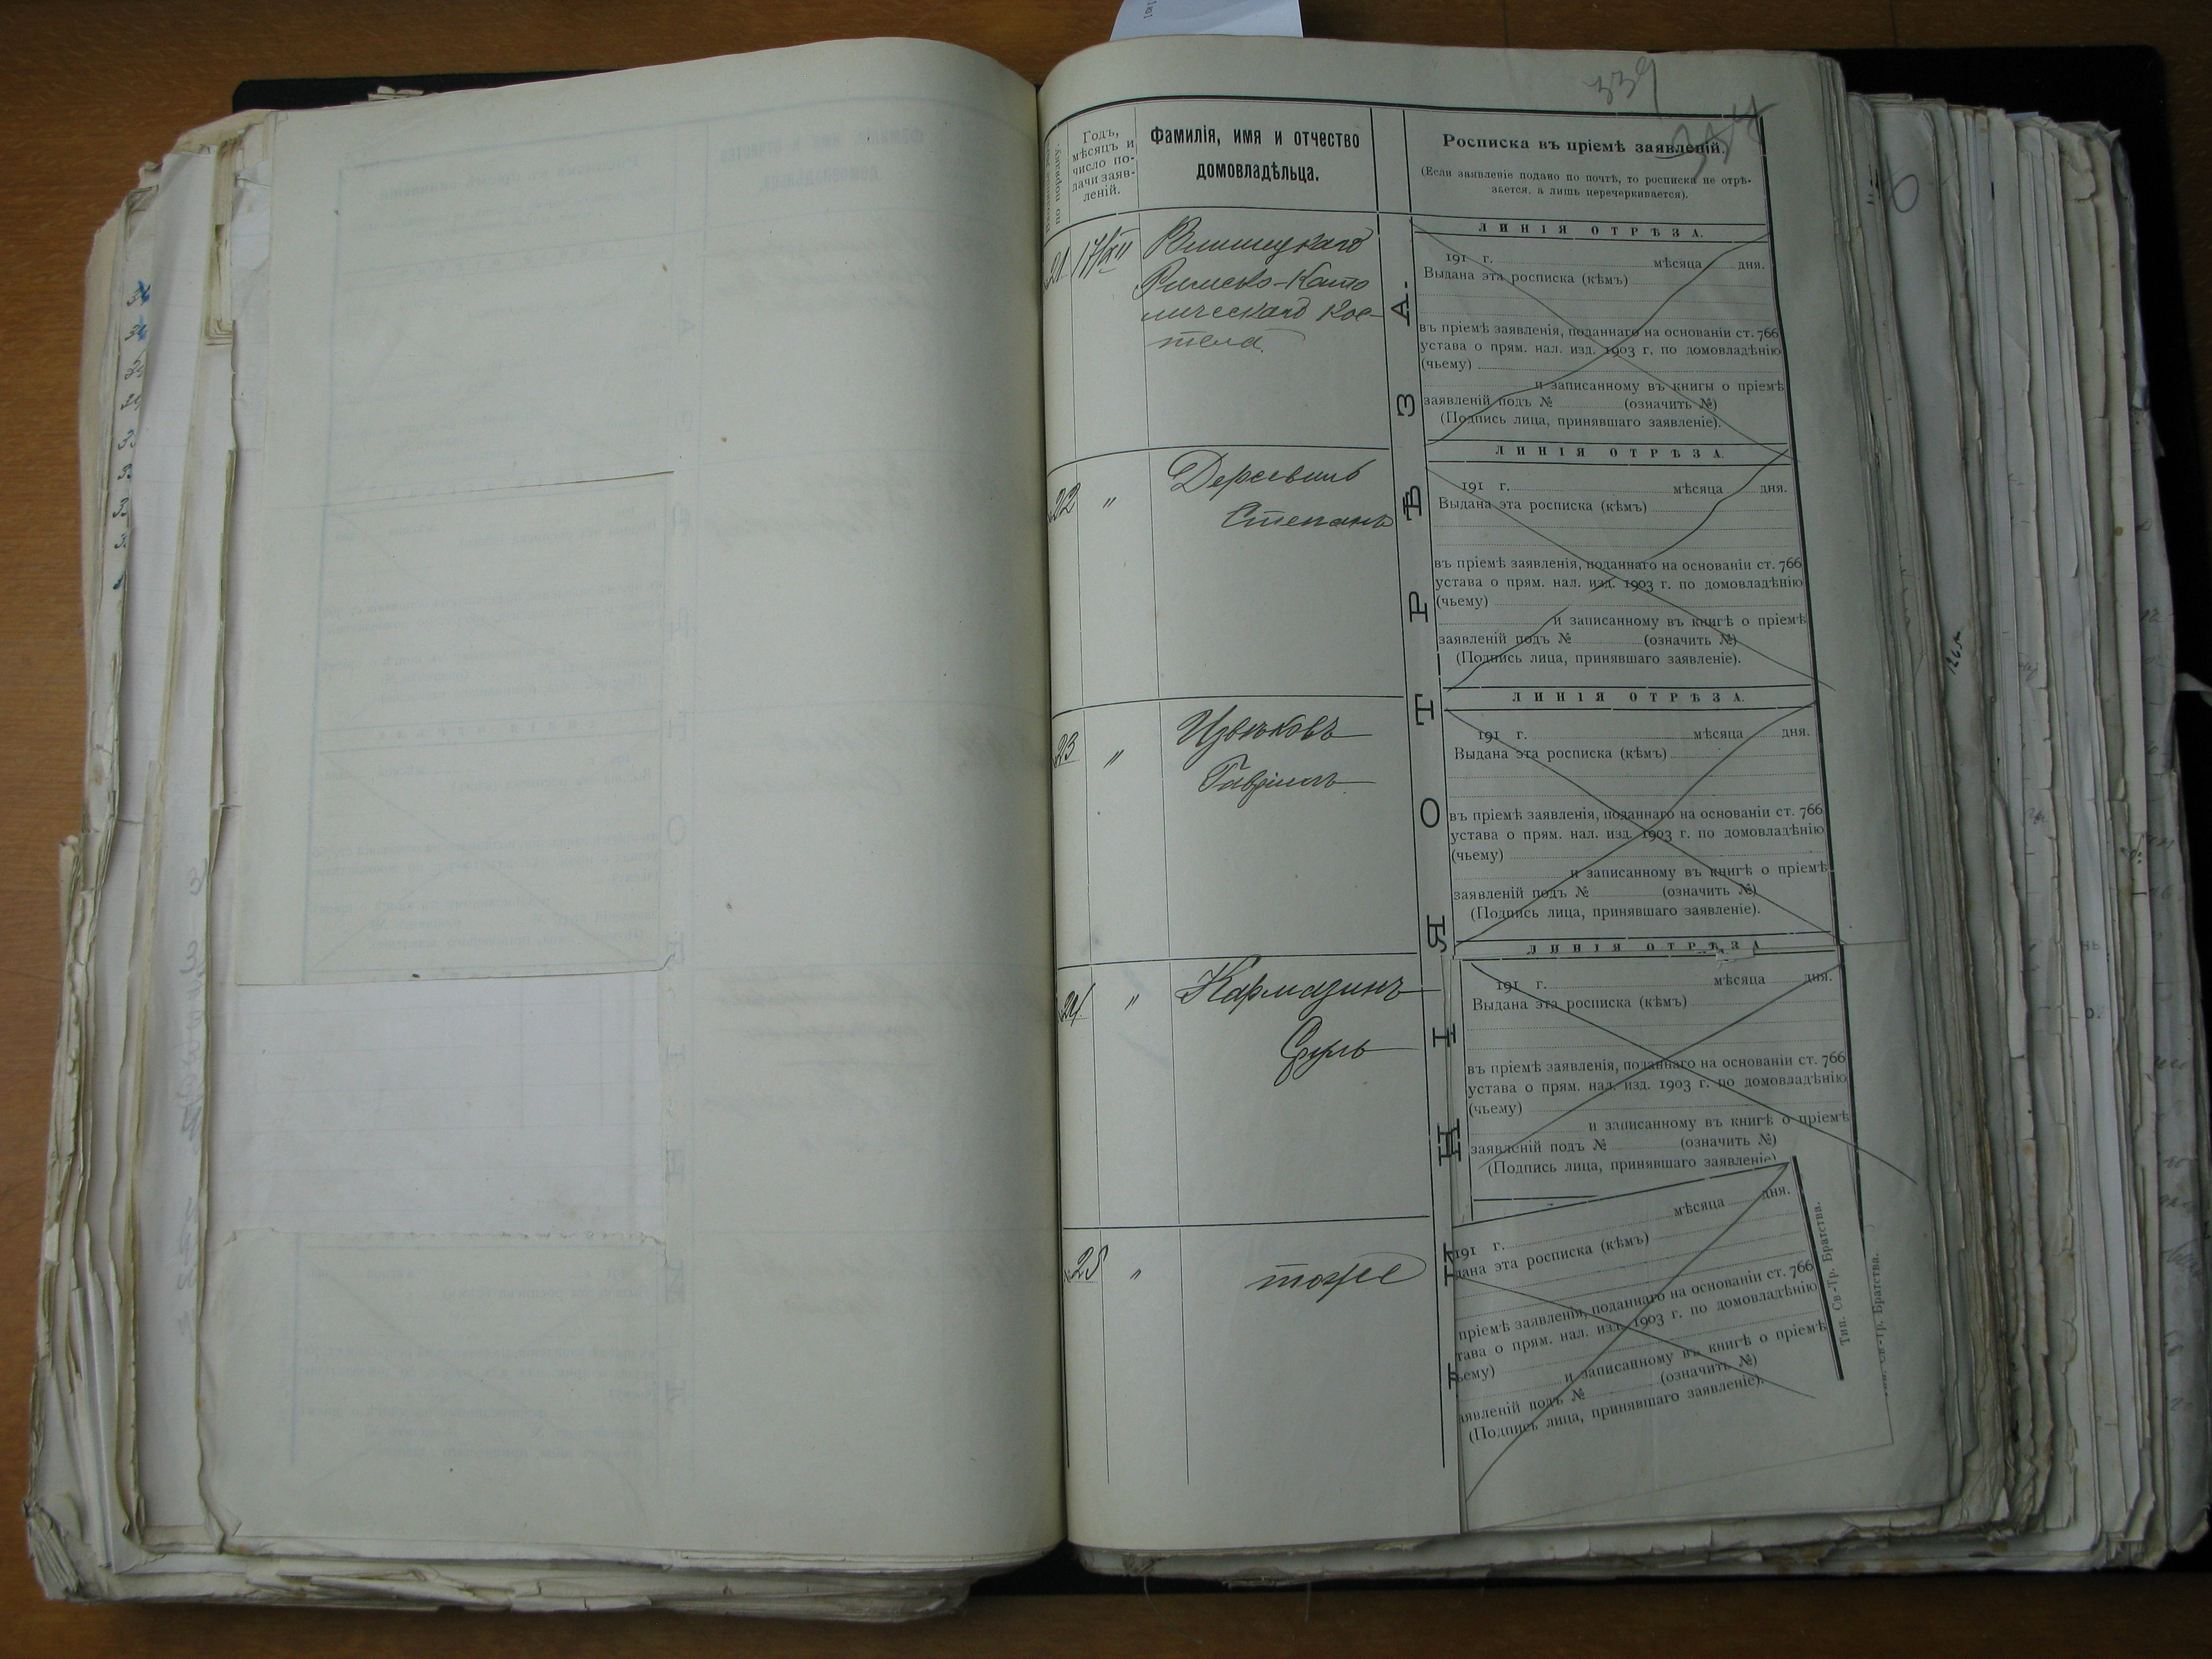 339
Годъ,
мѣсяцъ и
число по-
дачи заяв-
леній.
по порядку.
Фамилія, имя и отчество
домовладѣльца.
Росписка въ пріемѣ заявленій.
(Если заявленіе подано по почтѣ, то росписка не отрѣ-
зается, а лишь перечеркивается).
ЛИНІЯ ОТРѢЗА.
21
Римско-Като
лическаго Кос-
тела.
191 г. мѣсяца дня.
Выдана эта росписка (кѣмъ)
въ пріемѣ заявленія, поданнаго на основаніи ст. 766
устава о прям. нал. изд. 1903 г. по домовладѣнію
(чьему)
и записанному въ книгы о пріемѣ
заявленій подъ № (означить №)
(Подпись лица, принявшаго заявленіе).
ЛИНІЯ ОТРѢЗА
22 "
Степанъ
191 г. мѣсяца дня.
Выдана эта росписка (кѣмъ)
въ пріемѣ заявленія, поданнаго на основаніи ст. 766
устава о прям. нал. изд. 1903 г. по домовладѣнію
(чьему)
и записанному въ книгѣ о пріемѣ
заявленій подъ № (означить №)
(Подпись лица, принявшаго заявленіе).
ЛИНІЯ ОТРѢЗА.
23 "
Гавріилъ
191 г. мѣсяца дня.
Выдана эта росписка (кѣмъ)
въ пріемѣ заявленія, поданнаго на основаніи ст. 766
устава о прям. нал. изд. 1903 г. по домовладѣнію
(чьему)
и записанному въ книгѣ о пріемѣ
заявленій подъ № (означить №)
(Подпись лица, принявшаго заявленіе).
ЛИНІЯ ОТРѢЗА
24 "
Кармазинъ
Сруль
191 г. мѣсяца дня.
Выдана эта росписка (кѣмъ)
въ пріемѣ заявленія, поданнаго на основаніи ст. 766
устава о прям. нал. изд. 1903 г. по домовладѣнію
(чьему)
и записанному въ книгѣ о пріемѣ
заявленій подъ № (означить №)
(Подпись лица, принявшаго заявленіе)
25 "
тоже
191 г. мѣсяца дня.
дана эта росписка (кѣмъ)
пріемѣ заявленія, поданнаго на основаніи ст. 766
тава о прям. нал. изд. 1903 г. по домовладѣнію
ьему)
и записанному въ книгѣ о пріемѣ
аявленій подъ № (означить №)
(Подпись лица, принявшаго заявленіе).
Тип. Св.-Тр. Братства.
Св.-Тр. Братства.